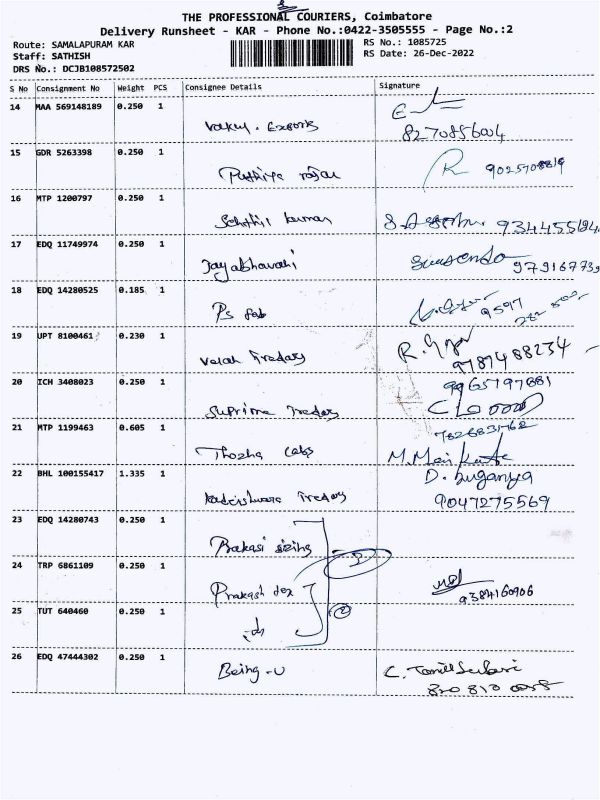 THE PROFESSIONAL COURIERS, Coimbatore
Delivery Runsheet - KAR - Phone No.:0422-3505555 - Page No.:2
Route: SAMALAPURAM KAR
Staff: SATHISH
DRS No.: DCJB108572502
RS No.: 1085725
RS Date: 26-Dec-2022
S No Consignment No Weight PCS Consignee Details Signature
14 MAA 569148189 0.250 1
8270856004
15 GDR 5263398 0.250 1
Puthiya rajau
R 9025708819
16 MTP 1200797 0.250 1
Senthil kumar
17 EDQ 11749974 0.250 1
Jayabhavani
18 EDQ 14280525 0.185 1
Ps fab
9597
19 UPT 8100461 0.230 1
Traders
9787488234
20 ICH 3408023 0.250 1
Suprime Traders
9965197881
21 MTP 1199463 0.605 1
Thozha Cabs
22 BHL 100155417 1.335 1
Traders
D. Suganya
9047275569
23 EDQ 14280743 0.250 1
sizing
24 TRP 6861109 0.250 1
Prakash tex
9384160906
25 TUT 640460 0.250 1
2
26 EDQ 47444302 0.250 1
Being-U